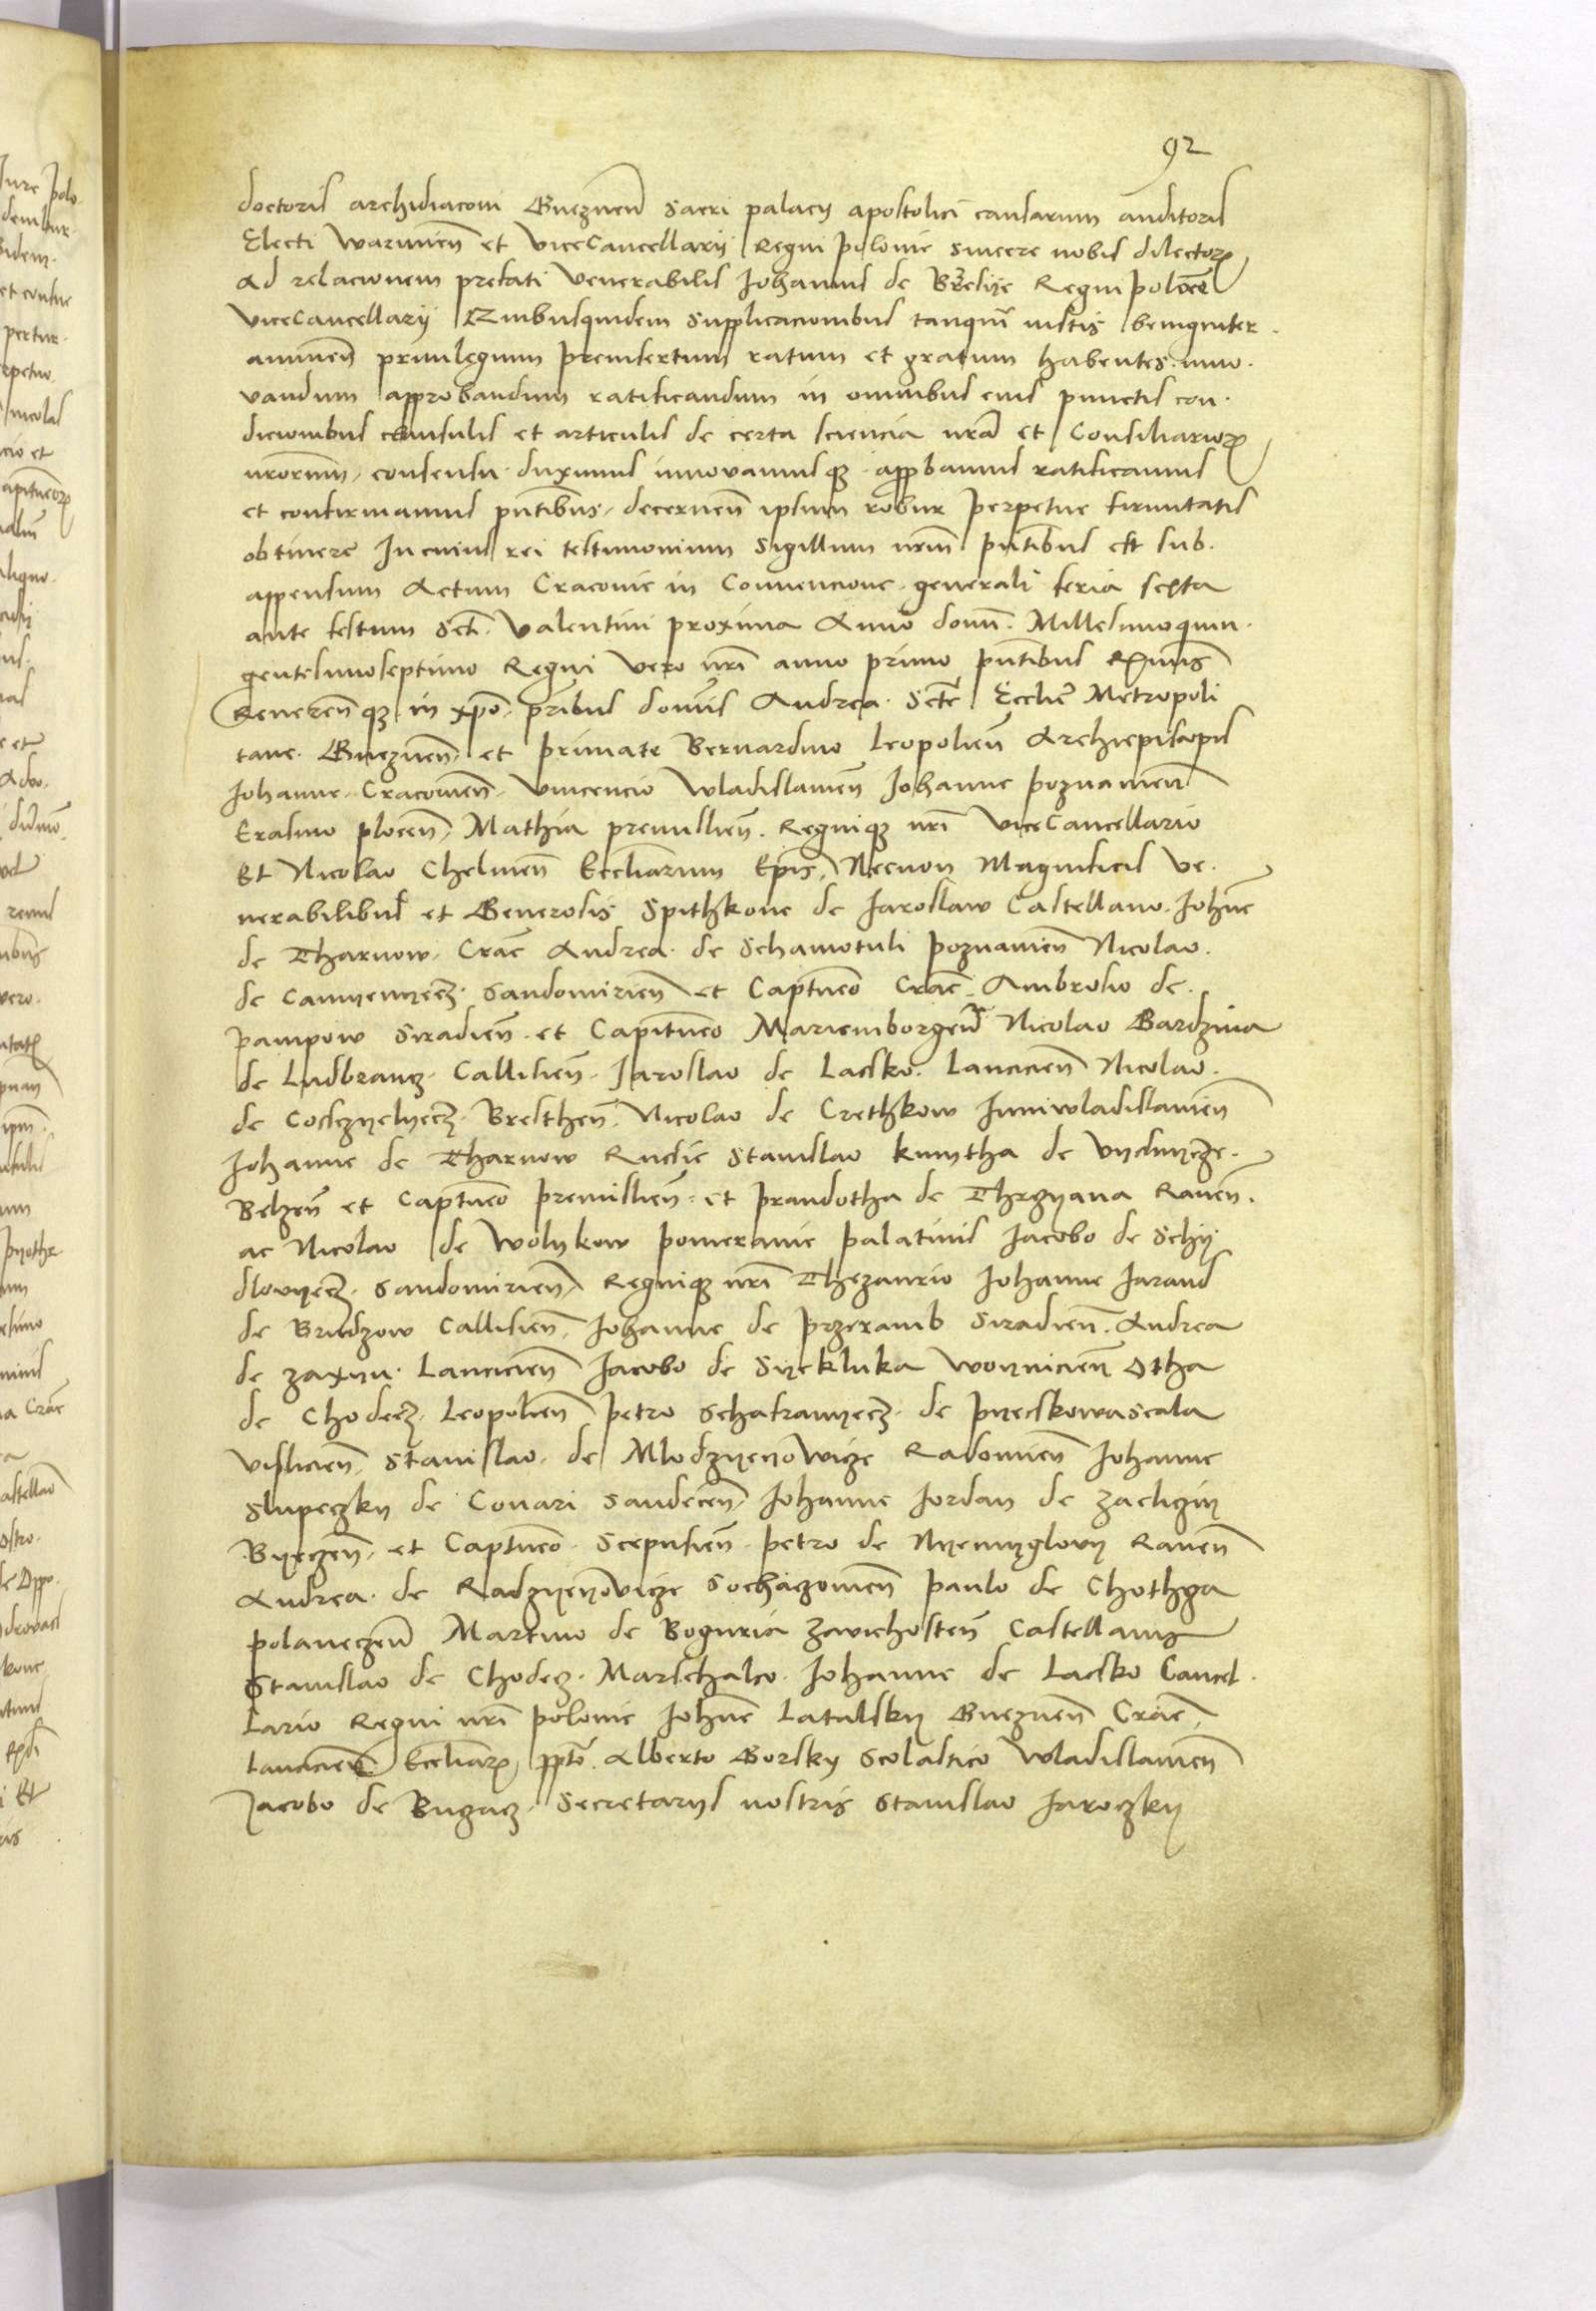 92
doctoris archidiaconi Gneznen̄ sacri palacÿ apostolici causarum auditoris
Electi warmien̄ et viceCancellarÿ Regni polonie sincere nobis dilectorꝝ
Ad relacionem prefati venerabilis Johannis de Bresÿe Regni polōe
viceCancellarÿ Quibusquidem supplicacionibus tanq̄ iustis benigniter
annuen̄ privilegium preinsertum ratum et gratum habentes. inno.
vandum approbandum ratificandum in omnibus eius punctis con.
dicionibus clausulis et articulis de certa sciencia nr̄a et Consiliariorꝝ
nrōrum, consensu. duximus innovamusqꝫ. appbamus ratificamus
et confirmamus pn̄tibus, decernen̄ ipsum robur perpetue firmitatis
obtinere In cuius rei testimonium sigillum nrm̄ pn̄tibus est sub.
appensum Actum Cracovie in Convencione. generali feria sexta
ante festum sct̄. Valentini proxima Anno domī. Millesimoquin.
gentesimoseptimo Regni vero nrī anno primo pn̄tibus Rm̄is
Reverenqꝫ. in xp̄o. prībus domīs Andrea. Scte Ecclīe Metropoli
tane. Gneznen̄. et primate Bernardino Leopolien̄ Archiepiscopis
Johanne. Cracovien̄. Vincencio wladislavien̄ Johanne poznanien̄
Erasmo plocen̄, Mathia premislien̄. Regniqꝫ nrī ViceCancellario
Et Nicolao Chelmen̄ Eccliarum Ep̄is, Necnon Magnificis ve.
nerabilibus et Generosis Spithkone de Jaroslaw Castellano. John̄e
de Tharnow. Crac̄ Andrea. de Schamotuli poznanien̄ Nicolao.
de Camyenyecz. Sandomirien̄ et Captn̄eo Crac̄. Ambrosio de.
pampow Siradien̄. et Capitn̄eo Mariemborgen̄ Nicolao Gardzina
de Ludbrancz. Callisien̄. Jaroslao de Lasko. Lancicien̄ Nicolao.
de Coszyelyecz. Bresthen̄. Nicolao de Crethkow Juniwladislavien̄
Johanne de Tharnow Russie Stanislao kmytha de vyssnycze.
Belzen̄ et Captn̄eo premislien̄. et prandotha de Thrzyana Raven̄.
ac Nicolao de wolykow pomeranie palatinis Jacobo de Schÿ
dlovyecz. Sandomirien̄, Regniqꝫ nrī Thezaurio Johanne Jarand
de Brudzow Callisien̄, Johanne de przeramb Siradien̄. Andrea
de zaxyn. Lancicien̄ Jacobo de Syekluka woynicien̄ Otha
de Chodecz. Leopolien̄ petro Schafranyecz. de pyeskowascala
vislicien̄, Stanislao. de Mlodzyeyowicze Radomien̄ Johanne
Slupeczky de Conari Sandecen̄, Johanne Jordan de zacliczyn
Byeczen̄. et Captn̄eo. Scepusien̄. petro de Nyemyglovy Raven̄
Andrea. de Radzyeyovicze Sochaczovien̄ paulo de Chothcza
polaneczen̄ Martino de Boguria zavichosten̄ Castellanis
Stanislao de Chodecz. Marschalco. Johanne de Lasko Cancel.
lario Regni nrī polonie John̄e Latalsky Gneznen̄ Crac̄,
Lancicien̄ Eccliarꝝ, ppt̄o. Alberto Gorsky Scolastico wladislavien̄
Jacobo de Buczacz. Secretarÿs nostris Stanislao Jaroczky